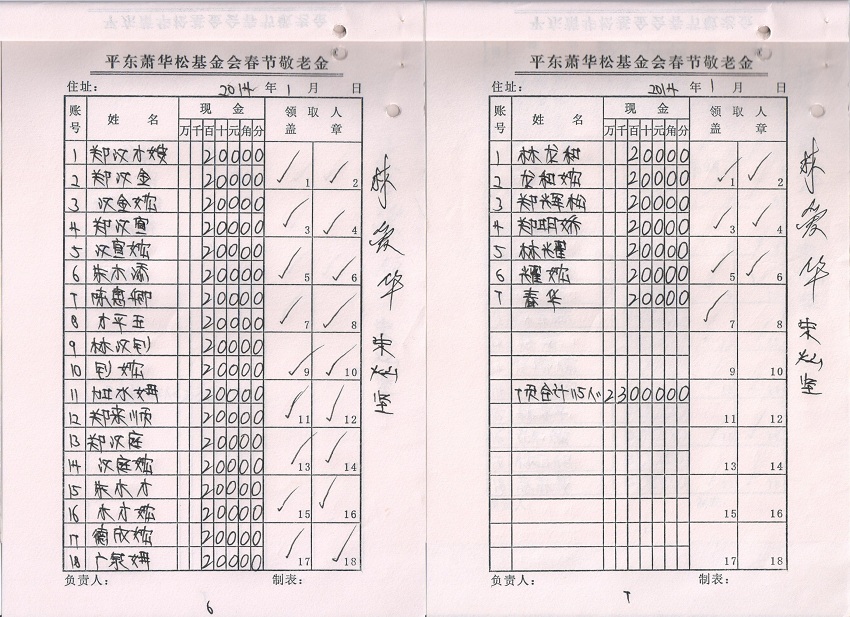 平东萧华松基金会春节敬老金
住址： 2014 年 1 月 日
账号 姓名 现金 领取人盖章
万 千 百 十 元 角 分
1 郑汉木嫂 20000
2 郑汉金 20000
3 汉金妳 20000
4 郑汉宣 20000
5 汉宣妳 20000
6 朱木添 20000
7 20000
8 木平五 20000
9 林汉钊 20000
10 钊妳 20000
11 20000
12 郑来顺 20000
13 郑汉庭 20000
14 汉庭妳 20000
15 朱木木 20000
16 木木妳 20000
17 德成妳 20000
18 20000
1 2
3 4
5 6
7 8
9 10
11 12
13 14
15 16
17 18
林爱华
负责人： 制表：
6
平东萧华松基金会春节敬老金
住址： 2014 年 1 月 日
账号 姓名 现金 领取人盖章
万 千 百 十 元 角 分
1 林龙和 20000
2 龙和妳 20000
3 郑辉松 20000
4 郑明娇 20000
5 林耀 20000
6 耀妳 20000
7 春华 20000
7页合计115人 2300000
1 2
3 4
5 6
7 8
9 10
11 12
13 14
15 16
17 18
林爱华
负责人： 制表：
7